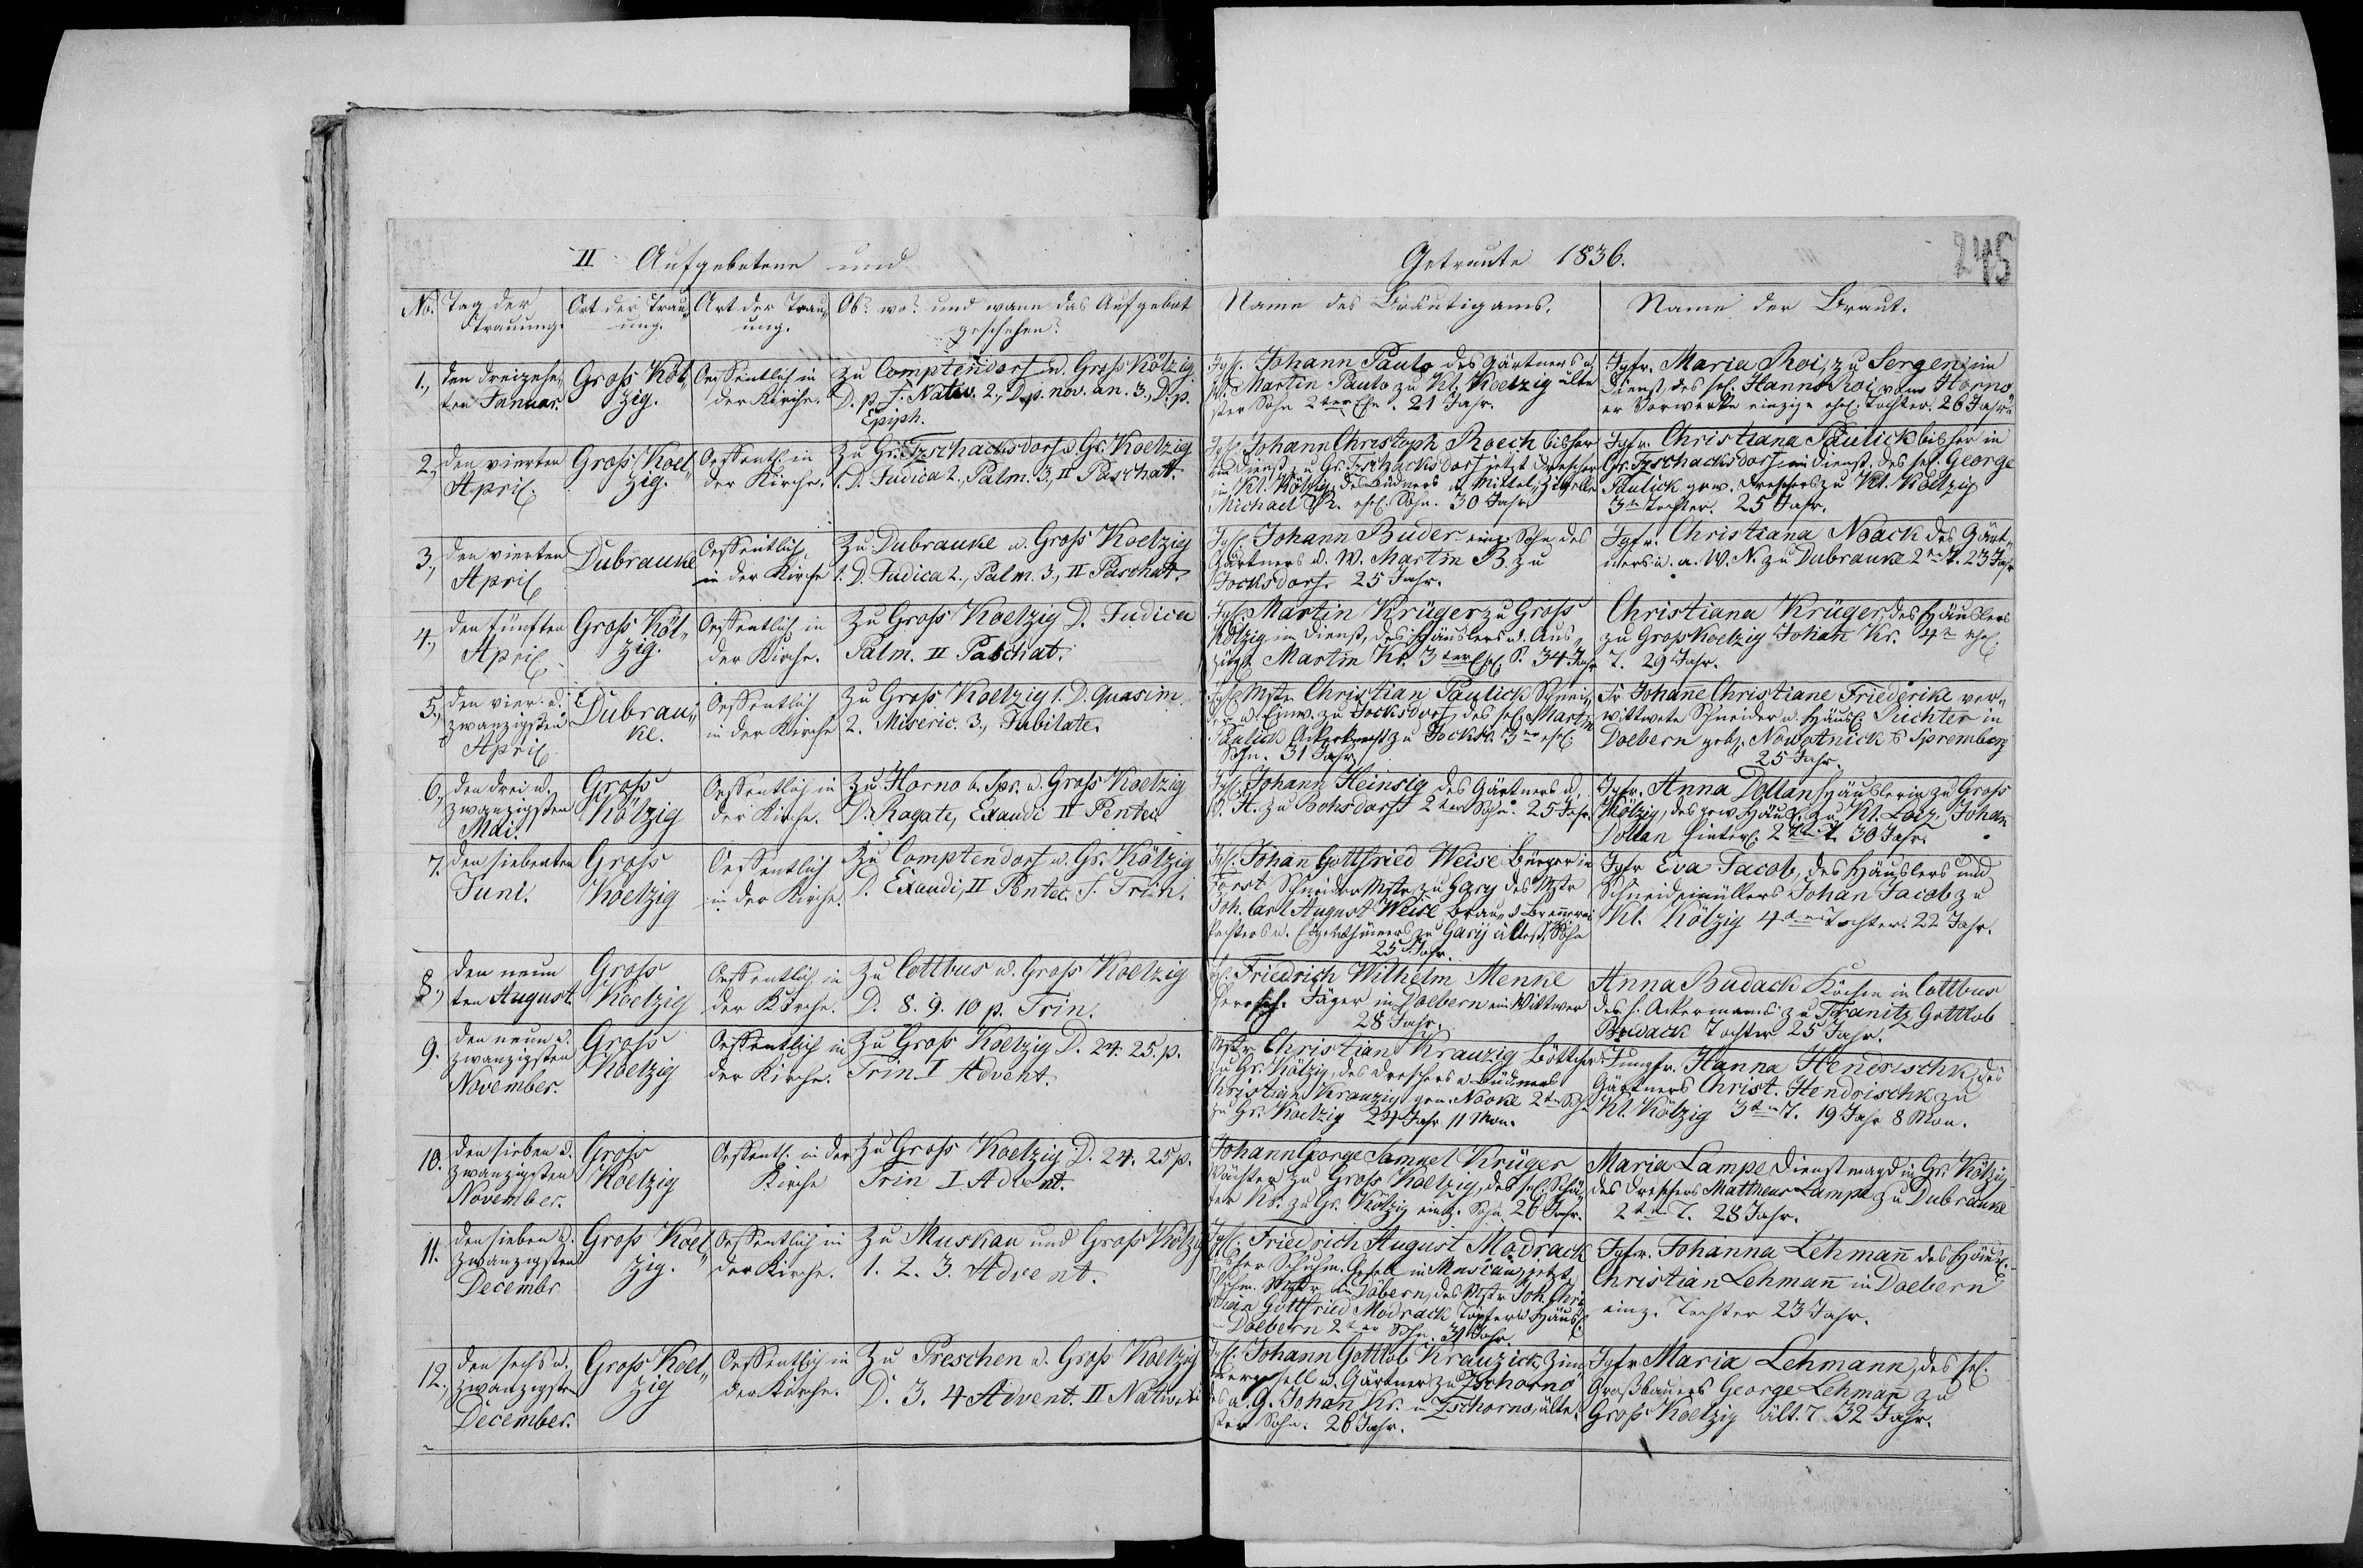 II Aufgebotene und
Getraute 1836.
245
No. Tag der Trauung.
Ort der Trau„ung.
Art der Trau„ung.
Ob? wo? und wann das Aufgebot geschehen?
Name des Bräutigams.
Name der Braut.
1., den dreizehn„
ten Januar.
Gross Köt„
zig.
Oeffentlich in
der Kirche.
Zu Comptendorf u. Gross Kötzig
D. p. F. Nativ. 2., D. p. nov. an. 3., D. p.
Epiph.
Jgs. Johann Paulo des Gärtners u.
Martin Paulo zu Kl. Koelzig älte
ster Sohn 2ter Ehe. 21 Jahr.
Jgfr. Maria Roi, zu Sergen im
Dienst, des sel. Hanns Roi vom Horno„
er Vorwerke einzige ehel. Tochter. 26 Jahr.
2., den vierten
April.
Gross Koel„
zig.
Oeffentl. in
der Kirche.
Zu Gr. Tzschacksdorf u. Gr. Koelzig
1. D. Judica 2., Palm. 3., II Paschat.
Jgs. Johann Christoph Roech bisher
im Dienst zu Gr. Tzschacksdorf jetzt Drescher
in Kl. Kölzig, des Büdners in Mittel
Michael R. ehel. Sohn. 30 Jahr.
Jgfr. Christiana Paulick bisher in
Gr. Tzschacksdorf im Dienst, des sel. George
Paulick gew. Dreschers zu Kl. Kölzig
3te Tochter. 25 Jahr.
3., den vierten
April
Dubrauke
Oeffentlich
in der Kirche
Zu Dubrauke u. Gross Koelzig
1. D. Judica 2., Palm. 3., II Paschat.
Jgs. Johann Buder einz. Sohn des
Gärtners u. W. Martin B. zu
Jocksdorf. 25 Jahr.
Jgfr. Christiana Noack des Gärt„
ners u. a. W. N. zu Dubrauke 2te T. 23 Jahr
4., den fünften
April
Gross Köl„
zig.
Oeffentlich in
der Kirche.
Zu Gross Koelzig D. Judica
Palm. II Paschat.
Jgs. Martin Krüger zu Gross
Kölzig im Dienst, des Häuslers u. Aus„
züg. Martin Kr. 3ter ehel. S. 34 Jahr
Christiana Krüger, des Häuslers
zu Gross Koelzig Johan Kr. 4te ehel.
T. 29 Jahr.
5., den vier u.
zwanzigsten
April
Dubrau„
ke.
Oeffentlich
in der Kirche
Zu Gross Koelzig 1. D. Quasim.
2. Miseric. 3., Jubilate.
Jgs. Mstr Christian Paulick Schnei„
der u. Einw. zu Jocksdorf, des sel. Martin
Paulick Ackerknecht zu Jocksd. 3ter ehel.
Sohn. 31 Jahr
Fr Johane Christiane Friederike ver„
wittwete Schneider u. Häusl. Richter in
Doebern geb. Nowatnick Spremberg
25 Jahr.
6., den drei u.
zwanzigsten
Mai.
Gross
Kölzig
Oeffentlich in
der Kirche.
Zu Horno b. Spr. u. Gross Koelzig
D. Rogate, Exaudi II Pentec
Jgs. Johann Heinsig des Gärtners u.
H. zu Bohsdorff 2ter Sohn. 25 Jahr.
Jgfr. Anna Dollan Häuslerin zu Gross
Kölzig, des gew. Häusl. zu Kl. Loiz, Johan
Dollan hinterl. 2te T. 30 Jahr.
7. den siebenten
Juni.
Gross
Koelzig
Oeffentlich
in der Kirche.
Zu Comptendorf u. Gr. Kölzig
D. Exaudi, II Pentec. F. Trin.
Jgs. Johan Gottfried Weise Bürger in
Forst Schneider Mstr zu Gary des Mstr
Joh. Carl August Weise Brau„ u Brennerei
Pachters u. Eigenthümers zu Gary ältest. Sohn
25 Jahr.
Jgfr Eva Jacob, des Häuslers und
Schneidemüllers Johan Jacob zu
Kl. Kölzig 4te Tochter. 22 Jahr.
8., den neun
ten August
Gross
Koelzig
Oeffentlich in
der Kirche.
Zu Cottbus u. Gross Koelzig
D. 8. 9. 10 p. Trin.
Friedrich Wilhelm Menke
herrsch. Jäger in Doebern ein Wittwer
28 Jahr.
Anna Budack Köchin in Cottbus
des h. Ackermanns zu Tranitz Gottlob
Budack Tochter 25 Jahr.
9. den neun u.
zwanzigsten
November.
Gross
Koelzig
Oeffentlich in
der Kirche.
Zu Gross Koelzig D. 24. 25. p.
Trin. I Advent.
Mstr Christian Krauzig Böttcher
zu Gr. Kölzig, des Dreschers u. Büdners
Christian Krauzig gen. Noack 2ter Sohn
zu Gr. Koelzig 24 Jahr 11 Mon.
Jungfr. Hanna Hendrischk, des
Gärtners Christ. Hendrischk zu
Kl. Kölzig 3te T. 19 Jahr 8 Mon.
10. den sieben u.
zwanzigsten
November.
Gross
Koelzig
Oeffentl. in der
Kirche
Zu Gross Koelzig D. 24. 25 p.
Trin I Advent.
Johann George Samuel Krüger
Wächter zu Gross Koelzig, des sel. Schä„
fer Kr. zu Gr. Kölzig einz. Sohn 26 Jahr.
Maria Lampe Dienstmagd in Gr. Kölzig
des Dreschers Mattheus Lampe zu Dubrauke
2te T. 28 Jahr.
11. den sieben u.
zwanzigsten
Decembr
Gross Koel„
zig.
Oeffentlich in
der Kirche.
Zu Muskau und Gross Kölzig
1. 2. 3. Advent.
Jgs. Friedrich August Modrack
bisher Schuhm. Gesell in Muskau, jetzt
Schuhm. Mstr in Döbern, des Mstr Joh. Chri
stian Gottfried Modrack Töpfer u Häusl.
Doebern 2ter Sohn. 31 Jahr
Jgfr. Johanna Lehmann des Häusl.
Christian Lehmann in Doebern
einz. Tochter 23 Jahr.
12. den sechs u.
zwanzigsten
December.
Gross Koel„
zig
Oeffentlich in
der Kirche.
Zu Preschen u. Gross Koelzig
D. 3. 4 Advent. II Nativ.
Jgs. Johann Gottlob Krauzick, Zim
mergesell u. Gärtner zu Zschorno
des a. G. Johan Kr. in Zschorno, älte„
ster Sohn. 26 Jahr.
Jgfr Maria Lehmann, des sel.
Grossbauers George Lehman zu
Gross Koelzig ält. T. 32 Jahr.